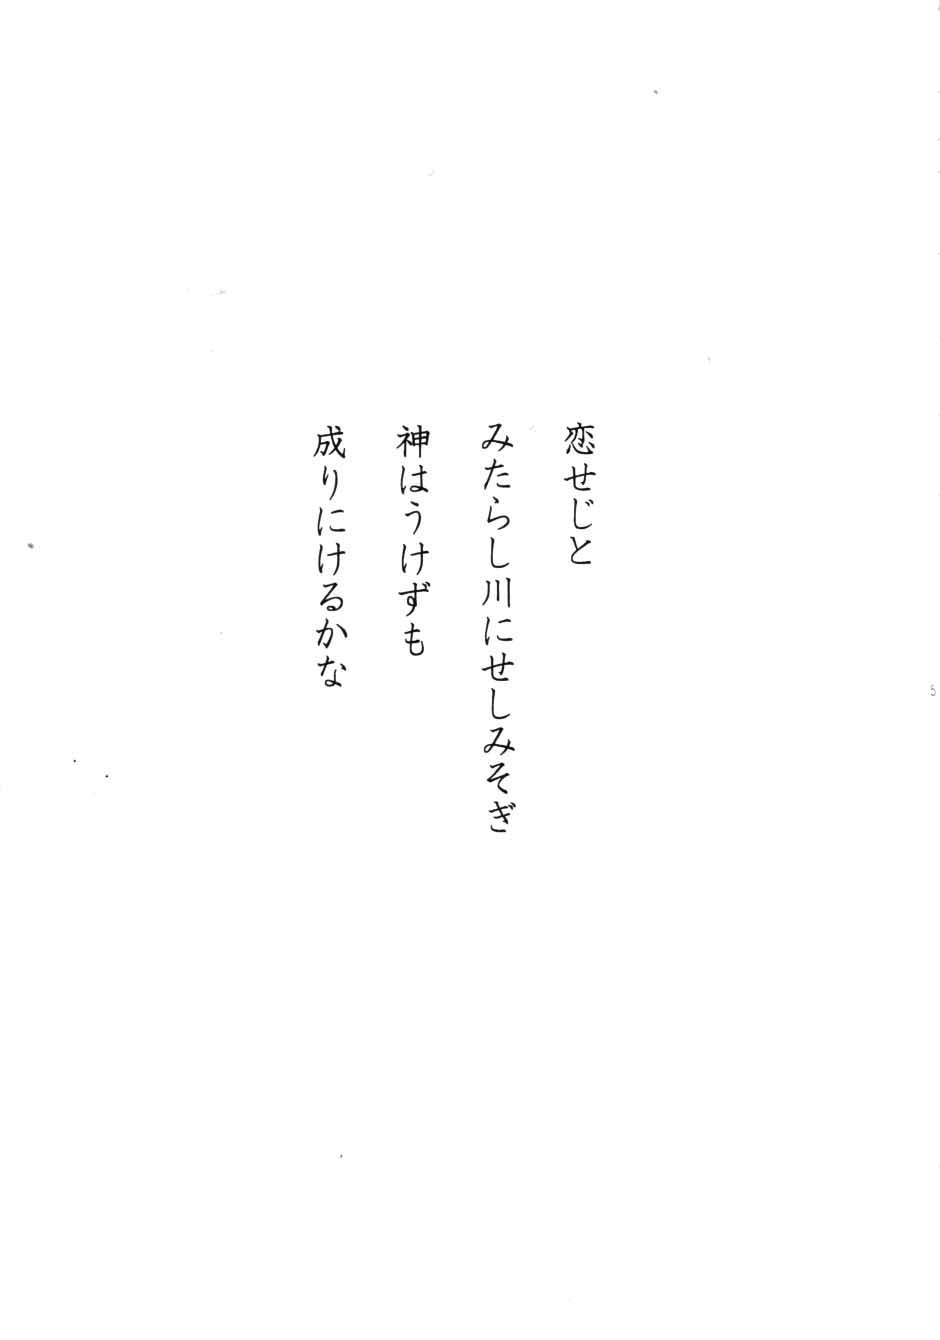 恋せじと
みたらし川にせしみそぎ
神はうけずも
成りにけるかな